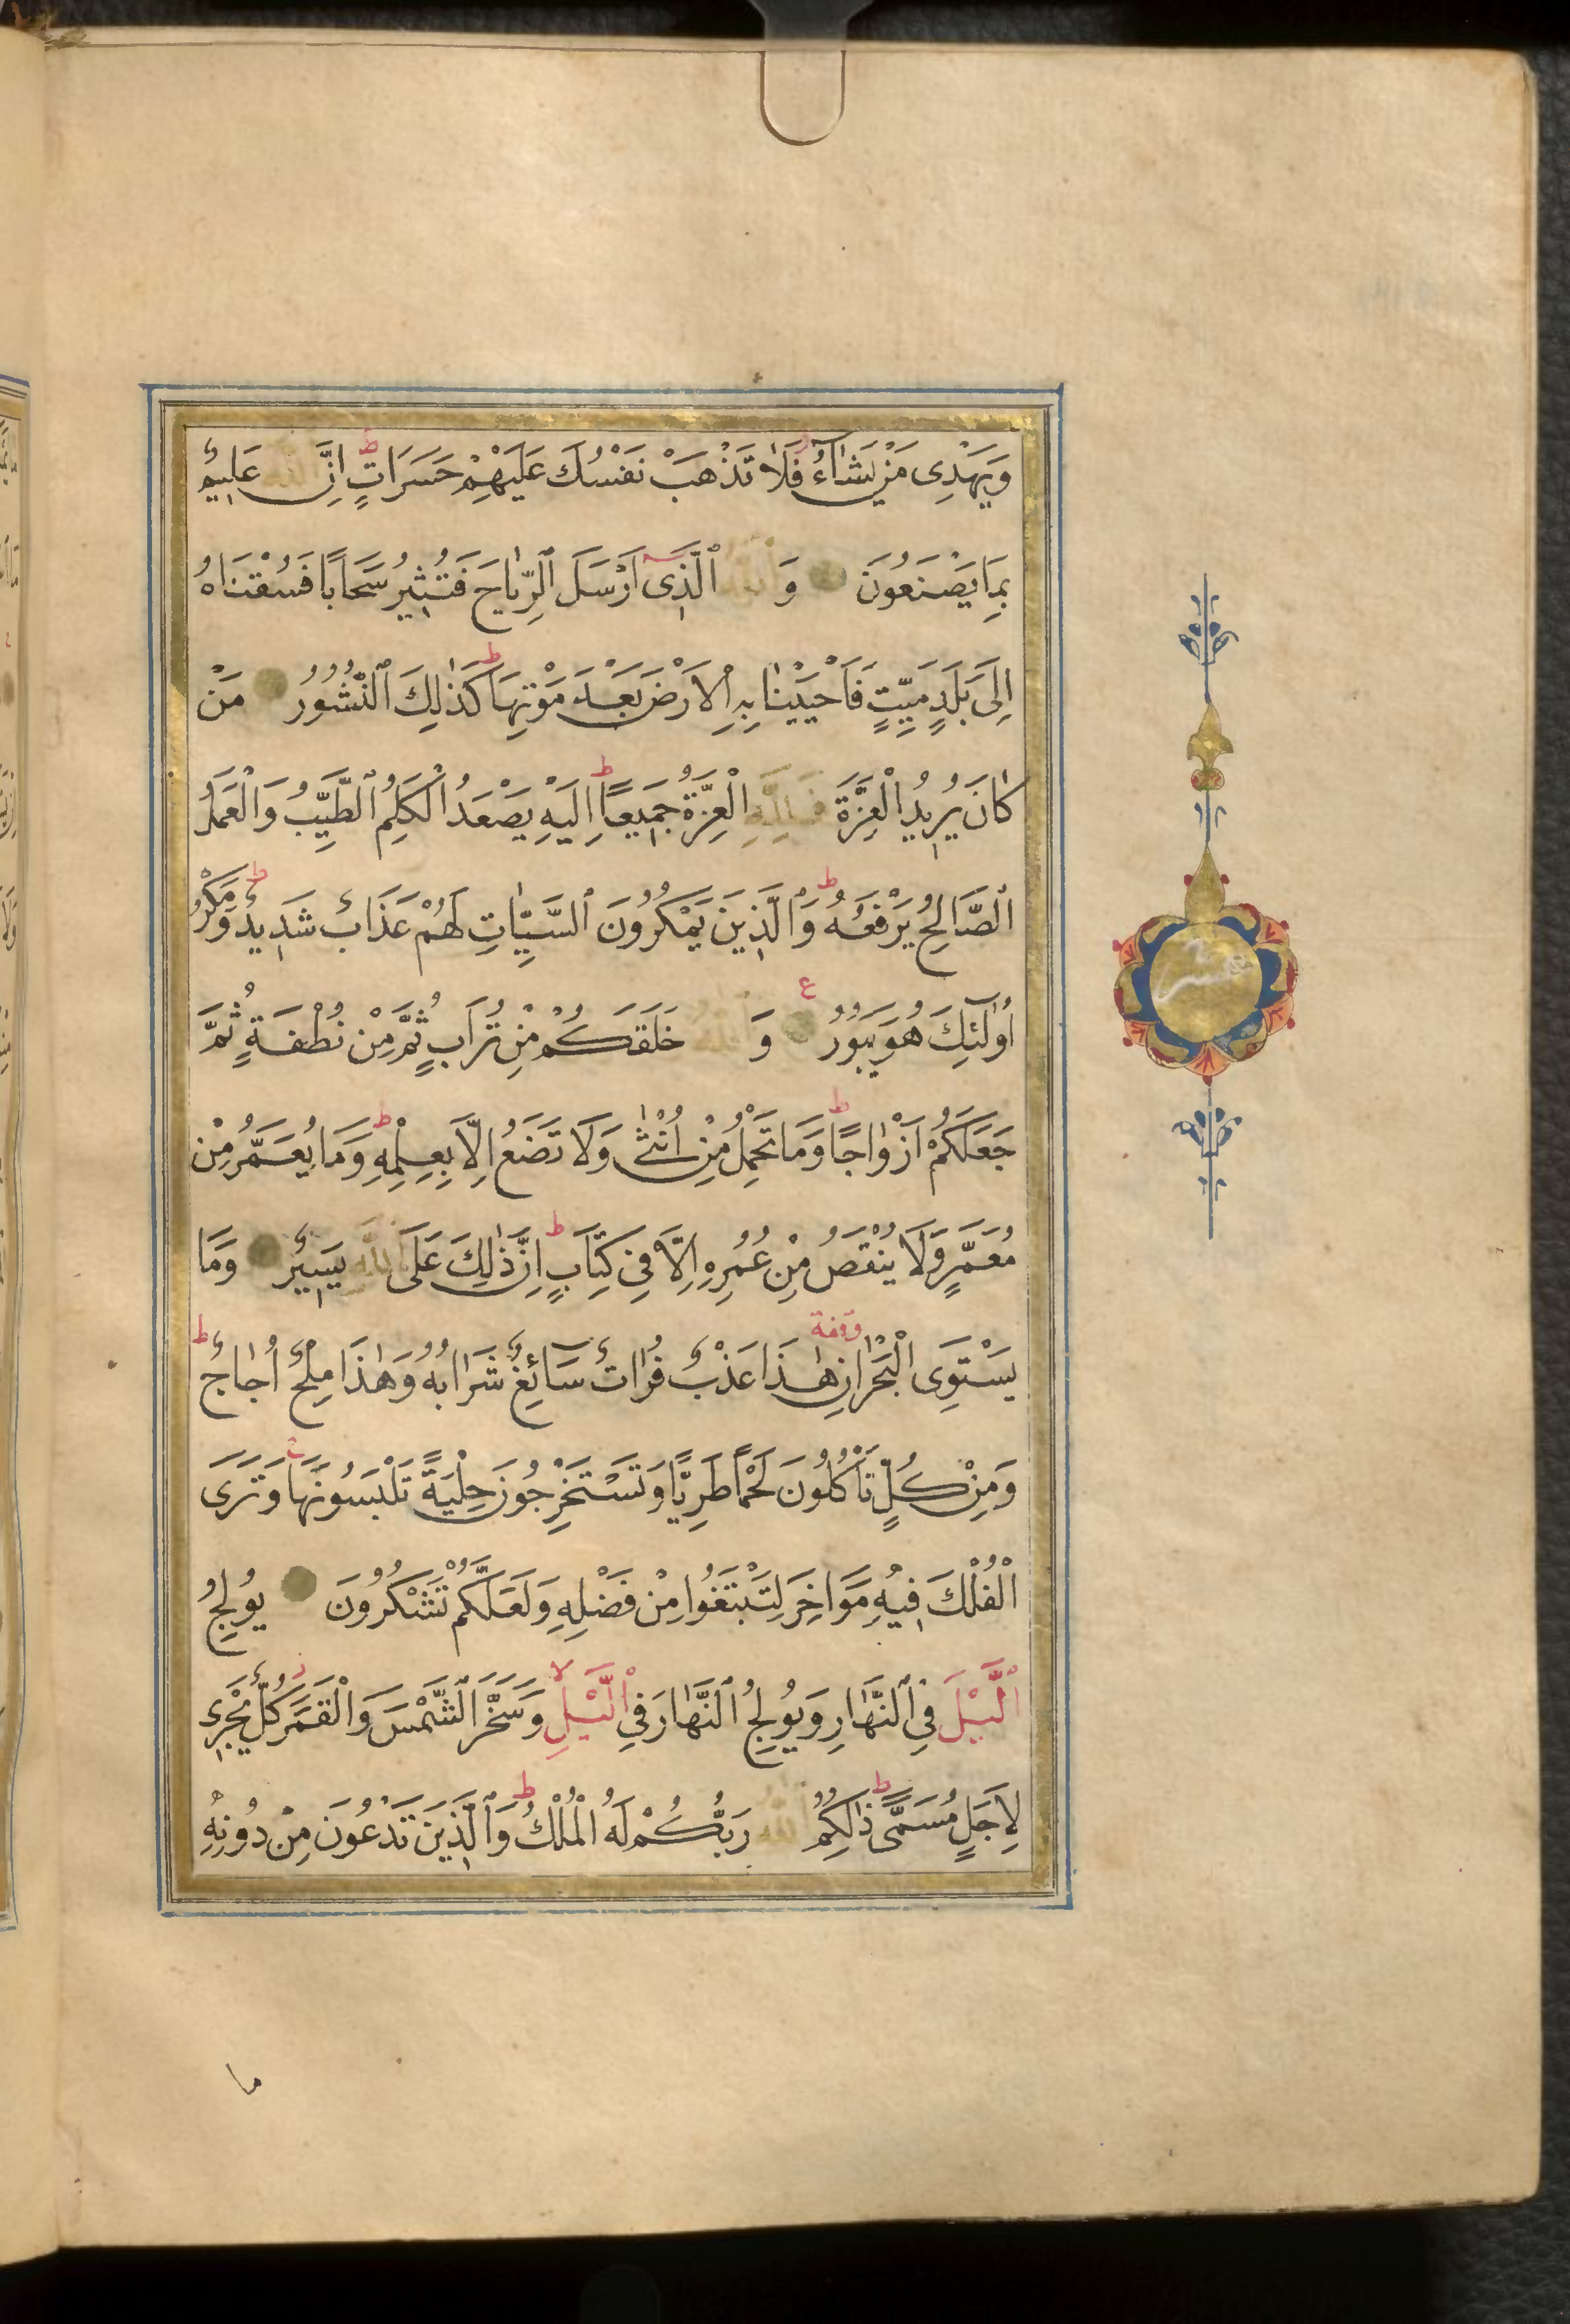 وَيَهْدِى مَنْ يَشَآءُ فَلَا تَذْهَبْ نَفْسُكَ عَلَيْهِمْ حَسَرَاتٍ ط اِنَّ اللّٰهَ عَلِيمٌ
بِمَا يَصْنَعُونَ وَاللّٰهُ الَّذِى اَرْسَلَ الرِّيَاحَ فَتُثِيرُ سَحَابًا فَسُقْنَاهُ
اِلَى بَلَدٍ مَيِّتٍ فَاَحْيَيْنَا بِهِ الْاَرْضَ بَعْدَ مَوْتِهَا ط كَذٰلِكَ النُّشُورُ مَنْ
كَانَ يُرِيدُ الْعِزَّةَ فَلِلّٰهِ الْعِزَّةُ جَمِيعًا ط اِلَيْهِ يَصْعَدُ الْكَلِمُ الطَّيِّبُ وَالْعَمَلُ
الصَّالِحُ يَرْفَعُهُ ط وَالَّذِينَ يَمْكُرُونَ السَّيِّاٰتِ لَهُمْ عَذَابٌ شَدِيدٌ ط وَمَكْرُ
اُولٰٓئِكَ هُوَ يَبُورُ ع وَاللّٰهُ خَلَقَكُمْ مِنْ تُرَابٍ ثُمَّ مِنْ نُطْفَةٍ ثُمَّ
جَعَلَكُمْ اَزْوَاجًا ط وَمَا تَحْمِلُ مِنْ اُنْثٰى وَلَا تَضَعُ اِلَّا بِعِلْمِهِ ط وَمَا يُعَمَّرُ مِنْ
مُعَمَّرٍ وَلَا يُنْقَصُ مِنْ عُمُرِهِ اِلَّا فِى كِتَابٍ ط اِنَّ ذٰلِكَ عَلَى اللّٰهِ يَسِيرٌ وَمَا
يَسْتَوِى الْبَحْرَانِ وقفة هٰذَا عَذْبٌ فُرَاتٌ سَآئِغٌ شَرَابُهُ وَهٰذَا مِلْحٌ اُجَاجٌ ط
وَمِنْ كُلٍّ تَاْكُلُونَ لَحْمًا طَرِيًّا وَتَسْتَخْرِجُونَ حِلْيَةً تَلْبَسُونَهَا وَتَرَى
الْفُلْكَ فِيهِ مَوَاخِرَ لِتَبْتَغُوا مِنْ فَضْلِهِ وَلَعَلَّكُمْ تَشْكُرُونَ يُولِجُ
الَّيْلَ فِى النَّهَارِ وَيُولِجُ النَّهَارَ فِى الَّيْلِ لا وَسَخَّرَ الشَّمْسَ وَالْقَمَرَ ز كُلٌّ يَجْرِى
لِاَجَلٍ مُسَمًّى ط ذٰلِكُمُ اللّٰهُ رَبُّكُمْ لَهُ الْمُلْكُ ط وَالَّذِينَ تَدْعُونَ مِنْ دُونِهِ
ما